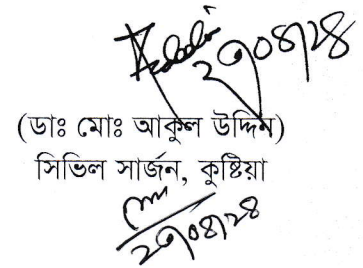 ২৭/০৪/২৪
(ডাঃ মোঃ আকুল উদ্দিন)
সিভিল সার্জন, কুষ্টিয়া
২৭/০৪/২৪